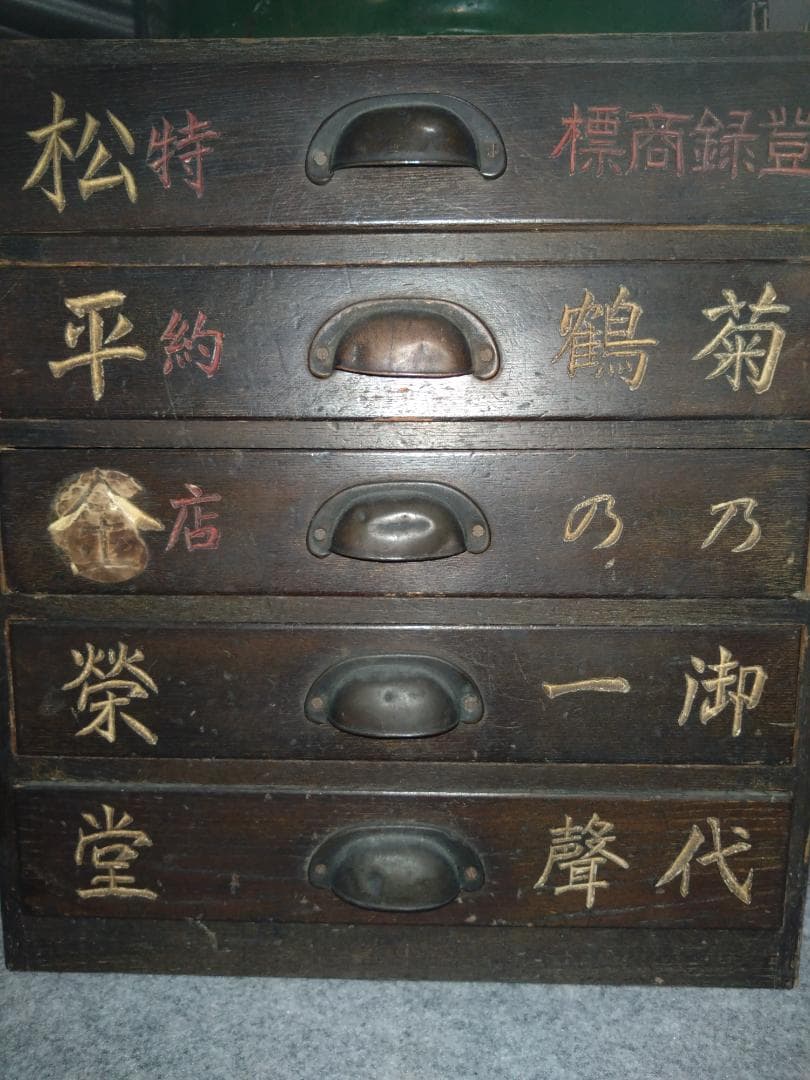 登録商標
菊乃御代
鶴の一聲
特約店
松平
榮堂